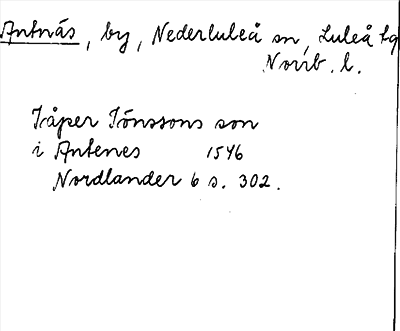 Antnäs, by, Nederluleå sn, Luleå tg
Norrb. l.
Kåper Jönssons son
i Antenes 1546
Nordlander 6 s. 302.